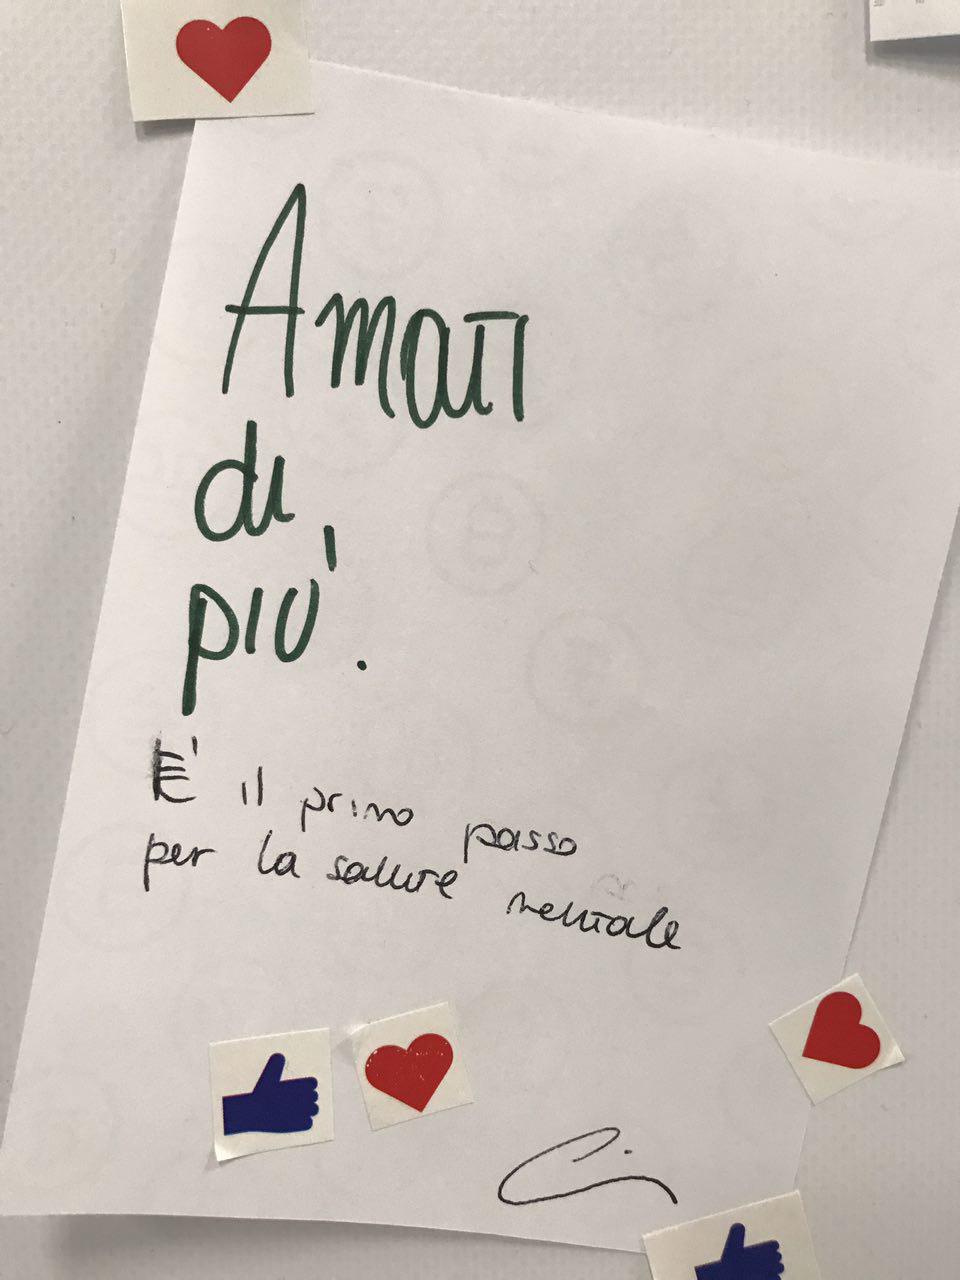 Amati
di
più.
E' il primo passo
per la salute mentale